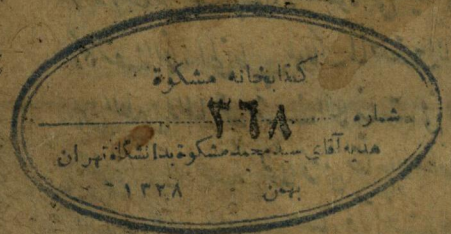 کتابخانه مشکوة
شماره ٣٦٨
هدیه آقای سید محمد مشکوة بدانشگاه تهران
بهمن ١٣٢٨